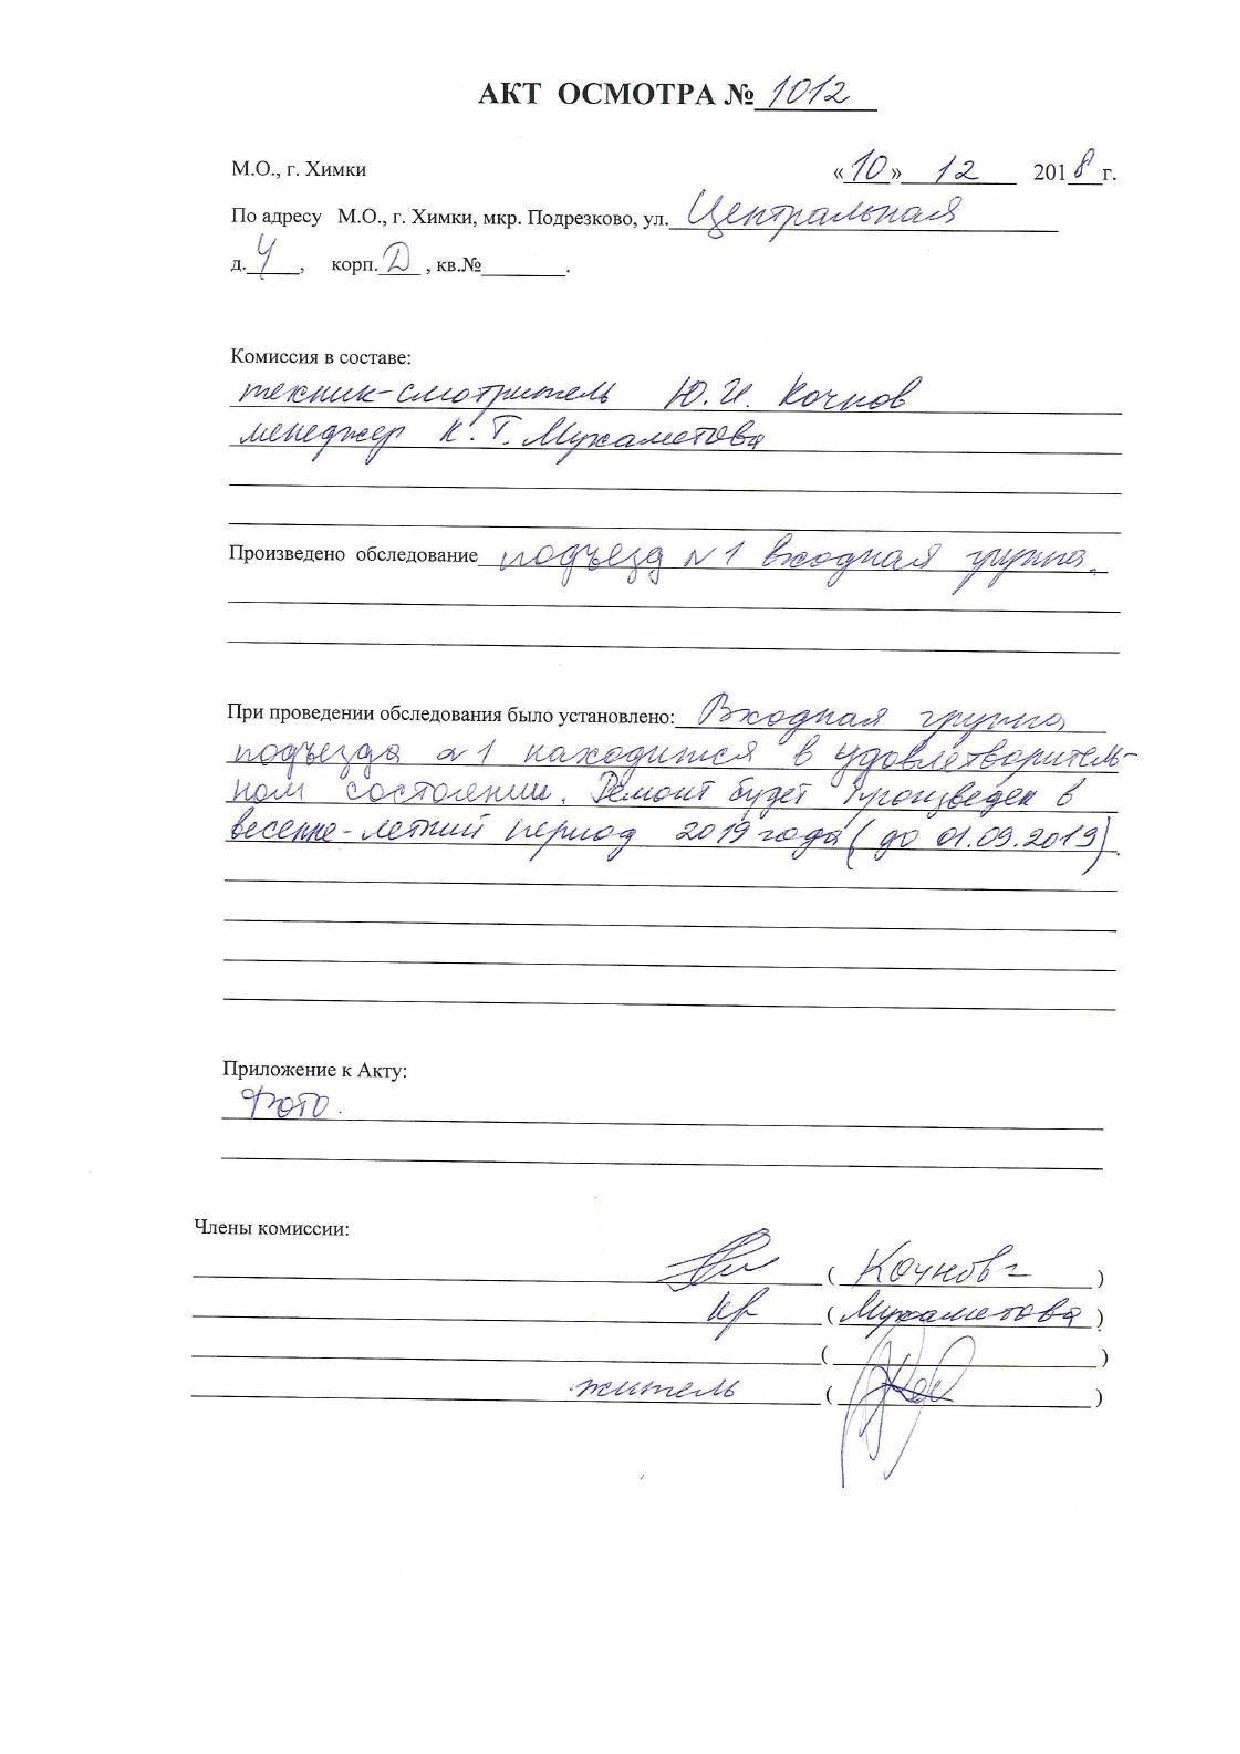 АКТ ОСМОТРА № 1012
М.О., г. Химки «10» 12 2018 г.
По адресу М.О., г. Химки, мкр. Подрезково, ул. Центральная
д. 4, корп. Д, кв.№ .
Комиссия в составе:
техник-смотритель Ю.И. Кочнов
менеджер К.Г. Мухаметова
Произведено обследование подъезд №1 входная группа.
При проведении обследования было установлено: Входная группа
подъезда №1 находится в удовлетворитель-
ном состоянии. Ремонт будет произведен в
весенне-летний период 2019 года (до 01.09.2019).
Приложение к Акту:
Фото.
Члены комиссии:
( Кочнов )
( Мухаметова )
( )
житель ( )